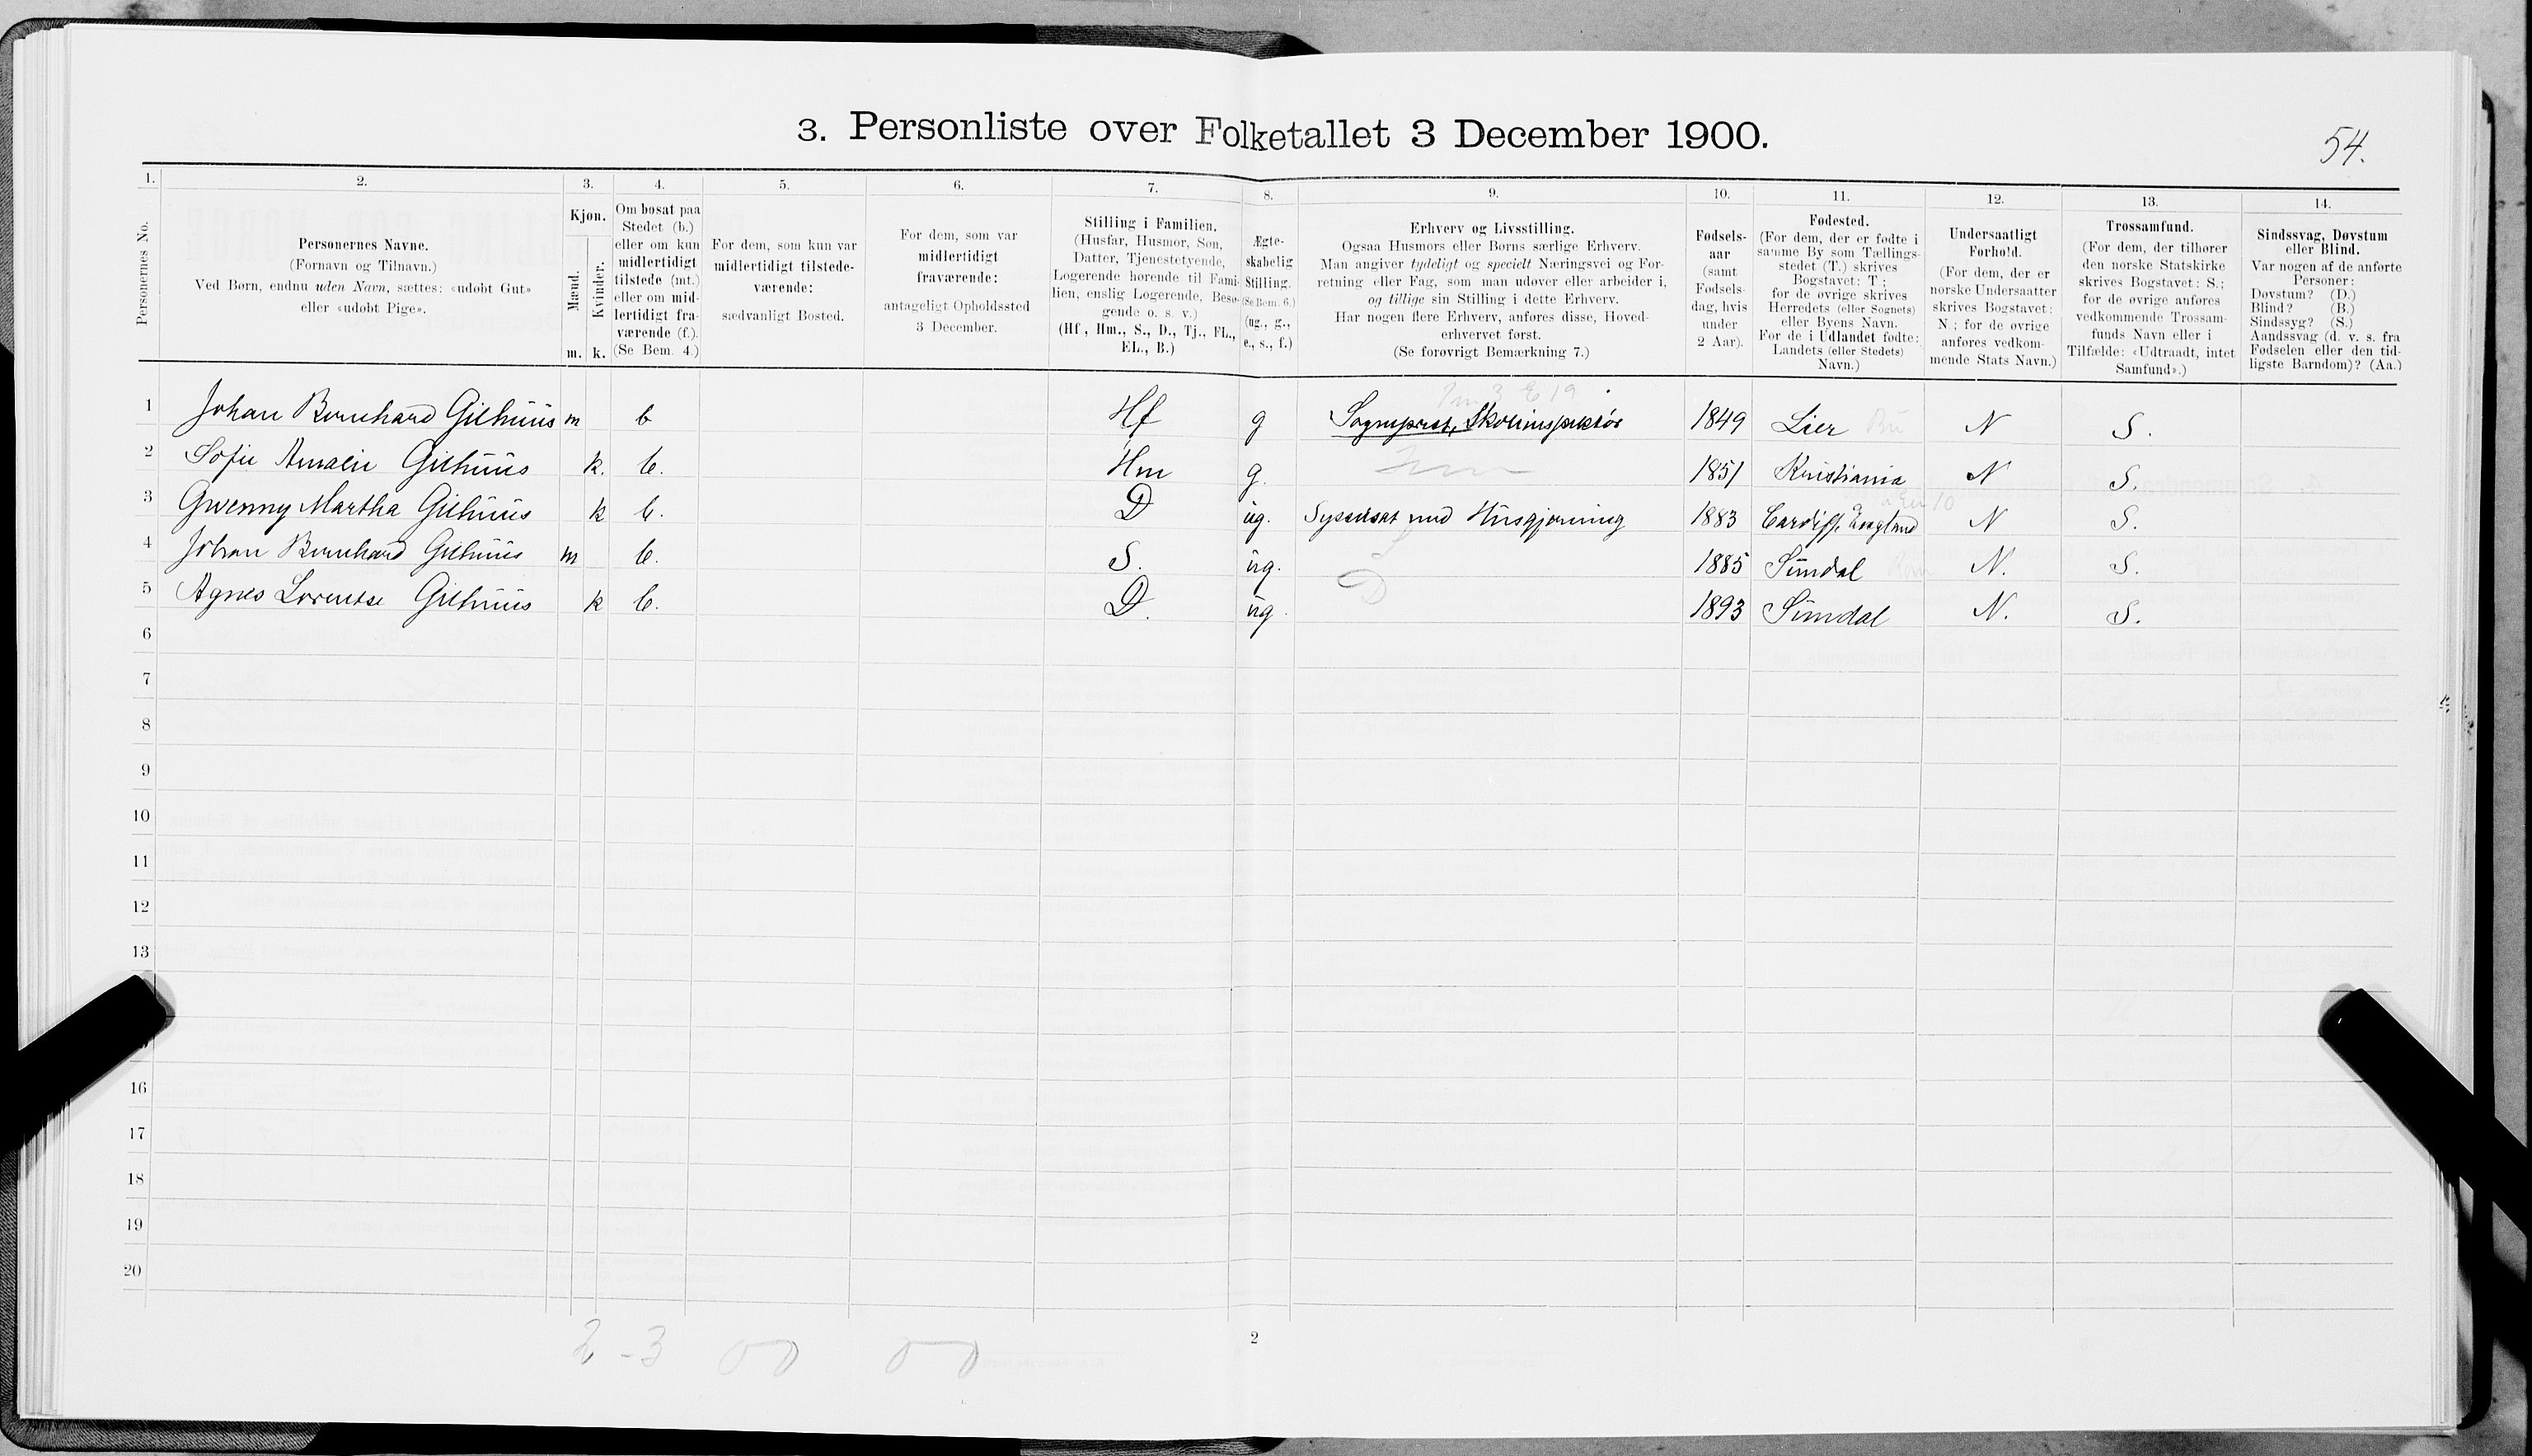 3. Personliste over Folketallet 3 December 1900.
54.
1.
2.
3.
4.
5.
6.
7.
8.
9.
10.
11.
12.
13.
14.
Personernes No.
Personernes Navne.
(Fornavn og Tilnavn.)
Ved Børn, endnu uden Navn, sættes: «udøbt Gut»
eller «udøbt Pige».
Kjøn.
Mænd.
Kvinder.
m. k.
Om bosat paa
Stedet (b.)
eller om kun
midlertidigt
tilstede (mt.)
eller om mid-
lertidigt fra-
værende (f.).
(Se Bem. 4.)
For dem, som kun var
midlertidigt tilstede-
værende:
sædvanligt Bosted.
For dem, som var
midlertidigt
fraværende:
antageligt Opholdssted
3 December.
Stilling i Familien.
(Husfar, Husmor, Søn,
Datter, Tjenestetyende,
Logerende hørende til Fami-
lien, enslig Logerende, Besø-
gende o. s. v.)
(Hf, Hm., S., D., Tj., FL.,
EL., B.)
Ægte-
skabelig
Stilling.
(Se Bem. 6.)
(ug., g.,
e., s., f.)
Erhverv og Livsstilling.
Ogsaa Husmors eller Børns særlige Erhverv.
Man angiver tydeligt og specielt Næringsvei og For-
retning eller Fag, som man udøver eller arbeider i,
og tillige sin Stilling i dette Erhverv.
Har nogen flere Erhverv, anføres disse, Hoved-
erhvervet først.
(Se forøvrigt Bemærkning 7.)
Fødsels-
aar
(samt
Fødsels-
dag, hvis
under
2 Aar).
Fødested.
(For dem, der er fødte i
samme By som Tællings-
stedet (T.) skrives
Bogstavet: T;
for de øvrige skrives
Herredets (eller Sognets)
eller Byens Navn.
For de i Udlandet fødte:
Landets (eller Stedets)
Navn.)
Undersaatligt
Forhold.
(For dem, der er
norske Undersaatter
skrives Bogstavet:
N; for de øvrige
anføres vedkom-
mende Stats Navn.)
Trossamfund.
(For dem, der tilhører
den norske Statskirke
skrives Bogstavet: S.;
for de øvrige anføres
vedkommende Trossam-
funds Navn eller i
Tilfælde: «Udtraadt, intet
Samfund».)
Sindssvag, Døvstum
eller Blind.
Var nogen af de anførte
Personer:
Døvstum? (D.)
Blind? (B.)
Sindssyg? (S.)
Aandssvag (d. v. s. fra
Fødselen eller den tid-
ligste Barndom)? (Aa.)
1 Johan Bernhard Gilhuus m b Hf g Sogneprest, Skoleinspektør 1849 Lier Bu N S.
2 Sofie Amalie Gilhuus k. b. Hm g. Hm 1851 Kristiania N S.
3 Gwenny Martha Gilhuus k b. D ug. Sysselsat med Husgjerning 1883 Cardiff, England N S.
4 Johan Bernhard Gilhuus m b. S. ug. 1885 Sundal N. S.
5 Agnes Lorentse Gilhuus k b. D. ug. D 1893 Sundal N. S.
6
7
8
9
10
11
12
13
16
17
18
19
20
2 - 3 0 0 0 0
2